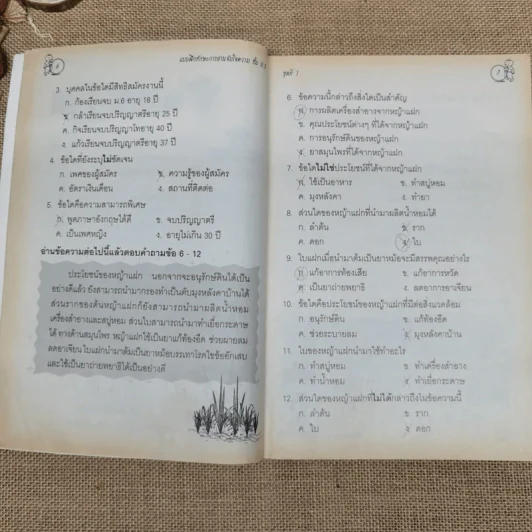 6
แบบฝึกทักษะการอ่านจับใจความ ชั้น ป.
3. บุคคลในข้อใดมีสิทธิสมัครงานนี้
ก. ก้องเรียนจบ ม.6 อายุ 18 ปี
ข. กล้าเรียนจบปริญญาตรีอายุ 25 ปี
ค. กิจเรียนจบปริญญาโทอายุ 40 ปี
ง. แก้วเรียนจบปริญญาตรีอายุ 37 ปี
4. ข้อใดที่ยังระบุไม่ชัดเจน
ก. เพศของผู้สมัคร ข. ความรู้ของผู้สมัคร
ค. อัตราเงินเดือน ง. สถานที่ติดต่อ
5. ข้อใดคือความสามารถพิเศษ
ก. พูดภาษาอังกฤษได้ดี ข. จบปริญญาตรี
ค. เป็นเพศหญิง ง. อายุไม่เกิน 30 ปี
อ่านข้อความต่อไปนี้แล้วตอบคำถามข้อ 6 - 12
ประโยชน์ของหญ้าแฝก นอกจากจะอนุรักษ์ดินได้เป็น
อย่างดีแล้ว ยังสามารถนำมากรองทำเป็นตับมุงหลังคาบ้านได้
ส่วนรากของต้นหญ้าแฝกก็ยังสามารถนำมาผลิตน้ำหอม
เครื่องสำอางและสบู่หอม ส่วนใบสามารถนำมาทำเยื่อกระดาษ
ได้ ทางด้านสมุนไพร หญ้าแฝกใช้เป็นยาแก้ท้องอืด ช่วยขายลม
ลดอาเจียน ใบแฝกนำมาต้มเป็นยาหม้อบรรเทาโรคไขข้ออักเสบ
และใช้เป็นยาถ่ายพยาธิได้เป็นอย่างดี
ชุดที่ 1
7
6. ข้อความนี้กล่าวถึงสิ่งใดเป็นสำคัญ
ก. การผลิตเครื่องสำอางจากหญ้าแฝก
ข. คุณประโยชน์ต่างๆ ที่ได้จากหญ้าแฝก
ค. การอนุรักษ์ดินของหญ้าแฝก
ง. ยาสมุนไพรที่ได้จากหญ้าแฝก
7. ข้อใดไม่ใช่ประโยชน์ที่ได้จากหญ้าแฝก
ก. ใช้เป็นอาหาร ข. ทำสบู่หอม
ค. มุงหลังคา ง. ทำยา
8. ส่วนใดของหญ้าแฝกที่นำมาผลิตน้ำหอมได้
ก. ลำต้น ข. ราก
ค. ดอก ง. ใบ
9. ใบแฝกเมื่อนำมาต้มเป็นยาหม้อจะมีสรรพคุณอย่างไร
ก. แก้อาการท้องเสีย ข. แก้อาการหวัด
ค. เป็นยาถ่ายพยาธิ ง. ลดอาการอาเจียน
10. ข้อใดคือประโยชน์ของหญ้าแฝกที่มีต่อสิ่งแวดล้อม
ก. อนุรักษ์ดิน ข. แก้ท้องอืด
ค. ช่วยระบายลม ง. มุงหลังคาบ้าน
11. ใบของหญ้าแฝกนำมาใช้ทำอะไร
ก. ทำสบู่หอม ข. ทำเครื่องสำอาง
ค. ทำน้ำหอม ง. ทำเยื่อกระดาษ
12. ส่วนใดของหญ้าแฝกที่ไม่ได้กล่าวถึงในข้อความนี้
ก. ลำต้น ข. ราก
ค. ใบ ง. ดอก